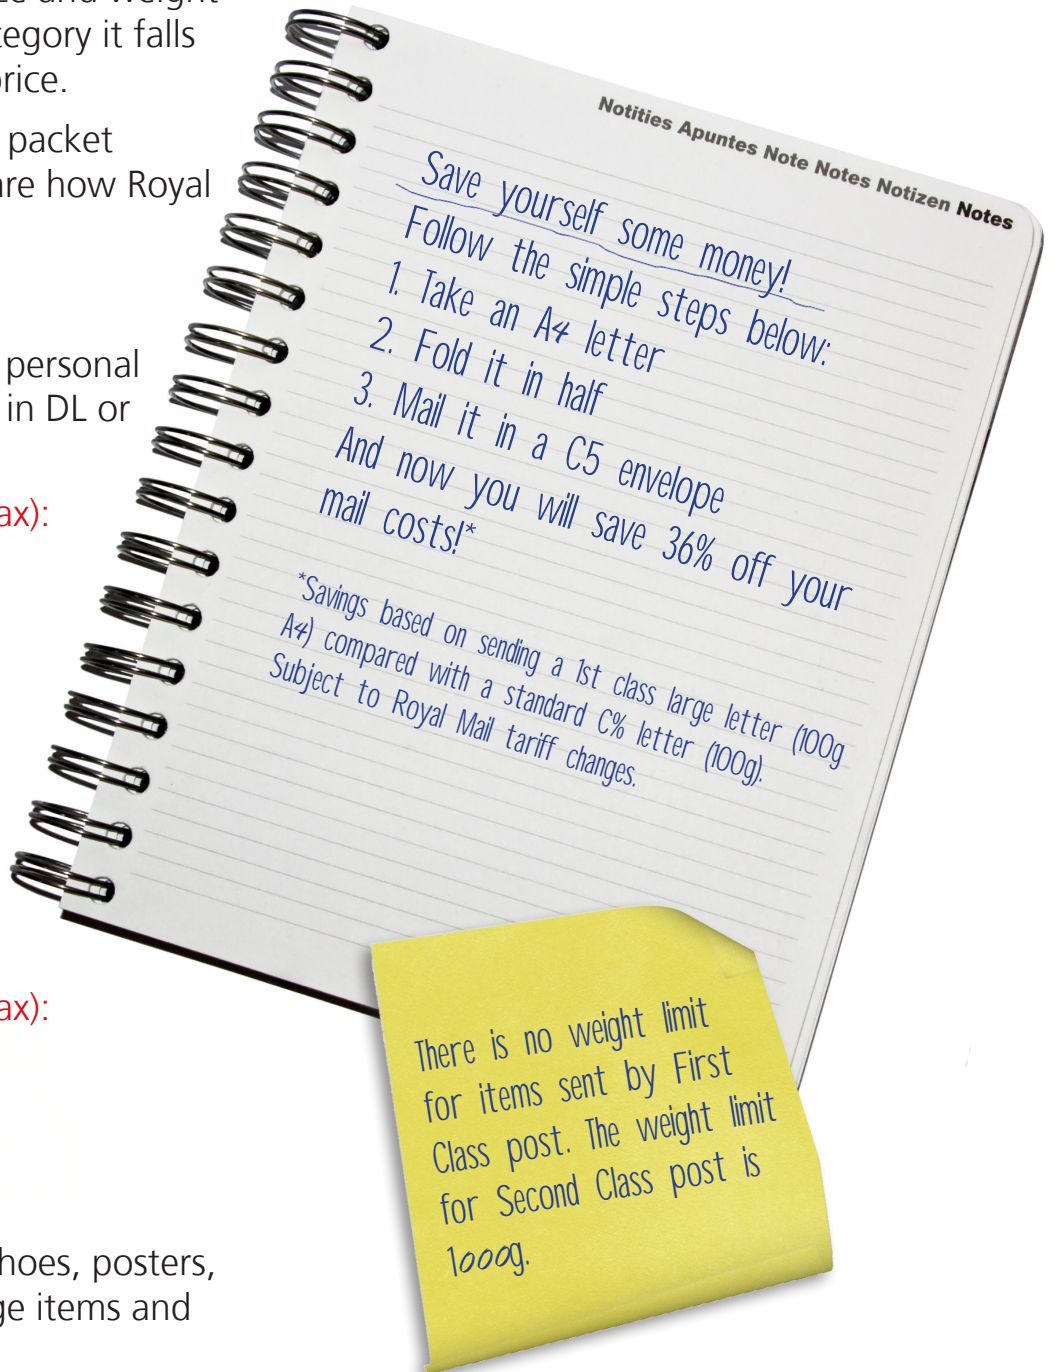 ze and weight
tegory it falls
price.
packet
are how Royal
personal
in DL or
ax):
ax):
hoes, posters,
ge items and
Notities Apuntes Note Notes Notizen Notes
Save yourself some money!
Follow the simple steps below:
1. Take an A4 letter
2. Fold it in half
3. Mail it in a C5 envelope
And now you will save 36% off your
mail costs!*
*Savings based on sending a 1st class large letter (100g
A4) compared with a standard C% letter (100g).
Subject to Royal Mail tariff changes.
There is no weight limit
for items sent by First
Class post. The weight limit
for Second Class post is
1000g.